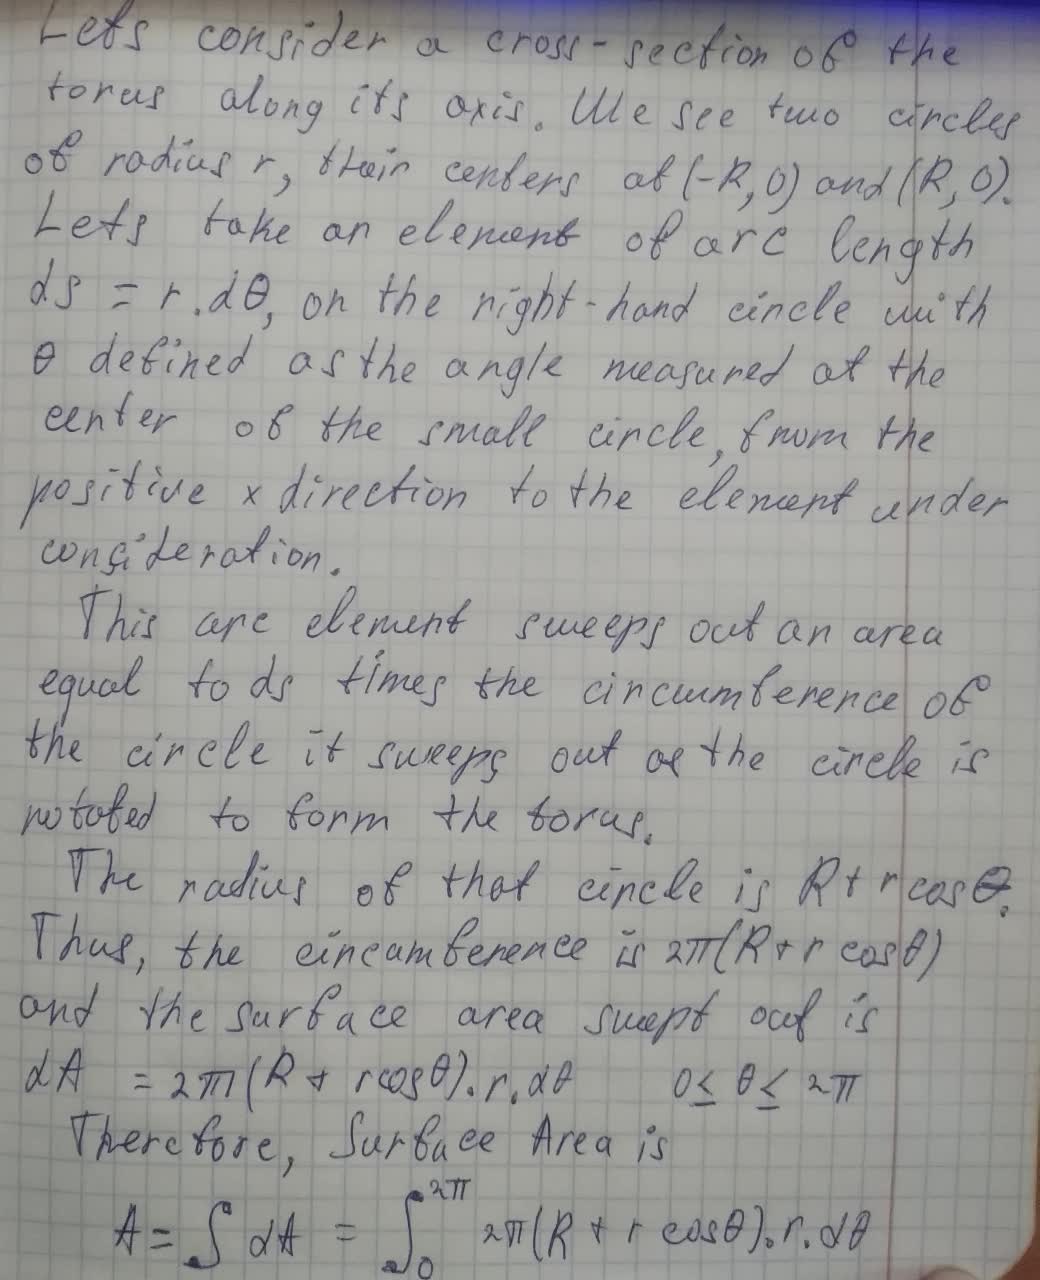 Lets consider a cross-section of the
torus along its axis. We see two circles
of radius r, their centers at (-R, 0) and (R, 0).
Lets take an element of arc length
ds = r.dθ, on the right-hand circle with
θ defined as the angle measured at the
center of the small circle, from the
positive x direction to the element under
consideration.
This arc element sweeps out an area
equal to ds times the circumference of
the circle it sweeps out as the circle is
rotated to form the torus.
The radius of that circle is R + r cosθ.
Thus, the circumference is 2π(R + r cosθ)
and the surface area swept out is
dA = 2π(R + r cosθ).r.dθ 0 ≤ θ ≤ 2π
Therefore, Surface Area is
A = ∫ dA = ∫₀^2π 2π(R + r cosθ).r.dθ